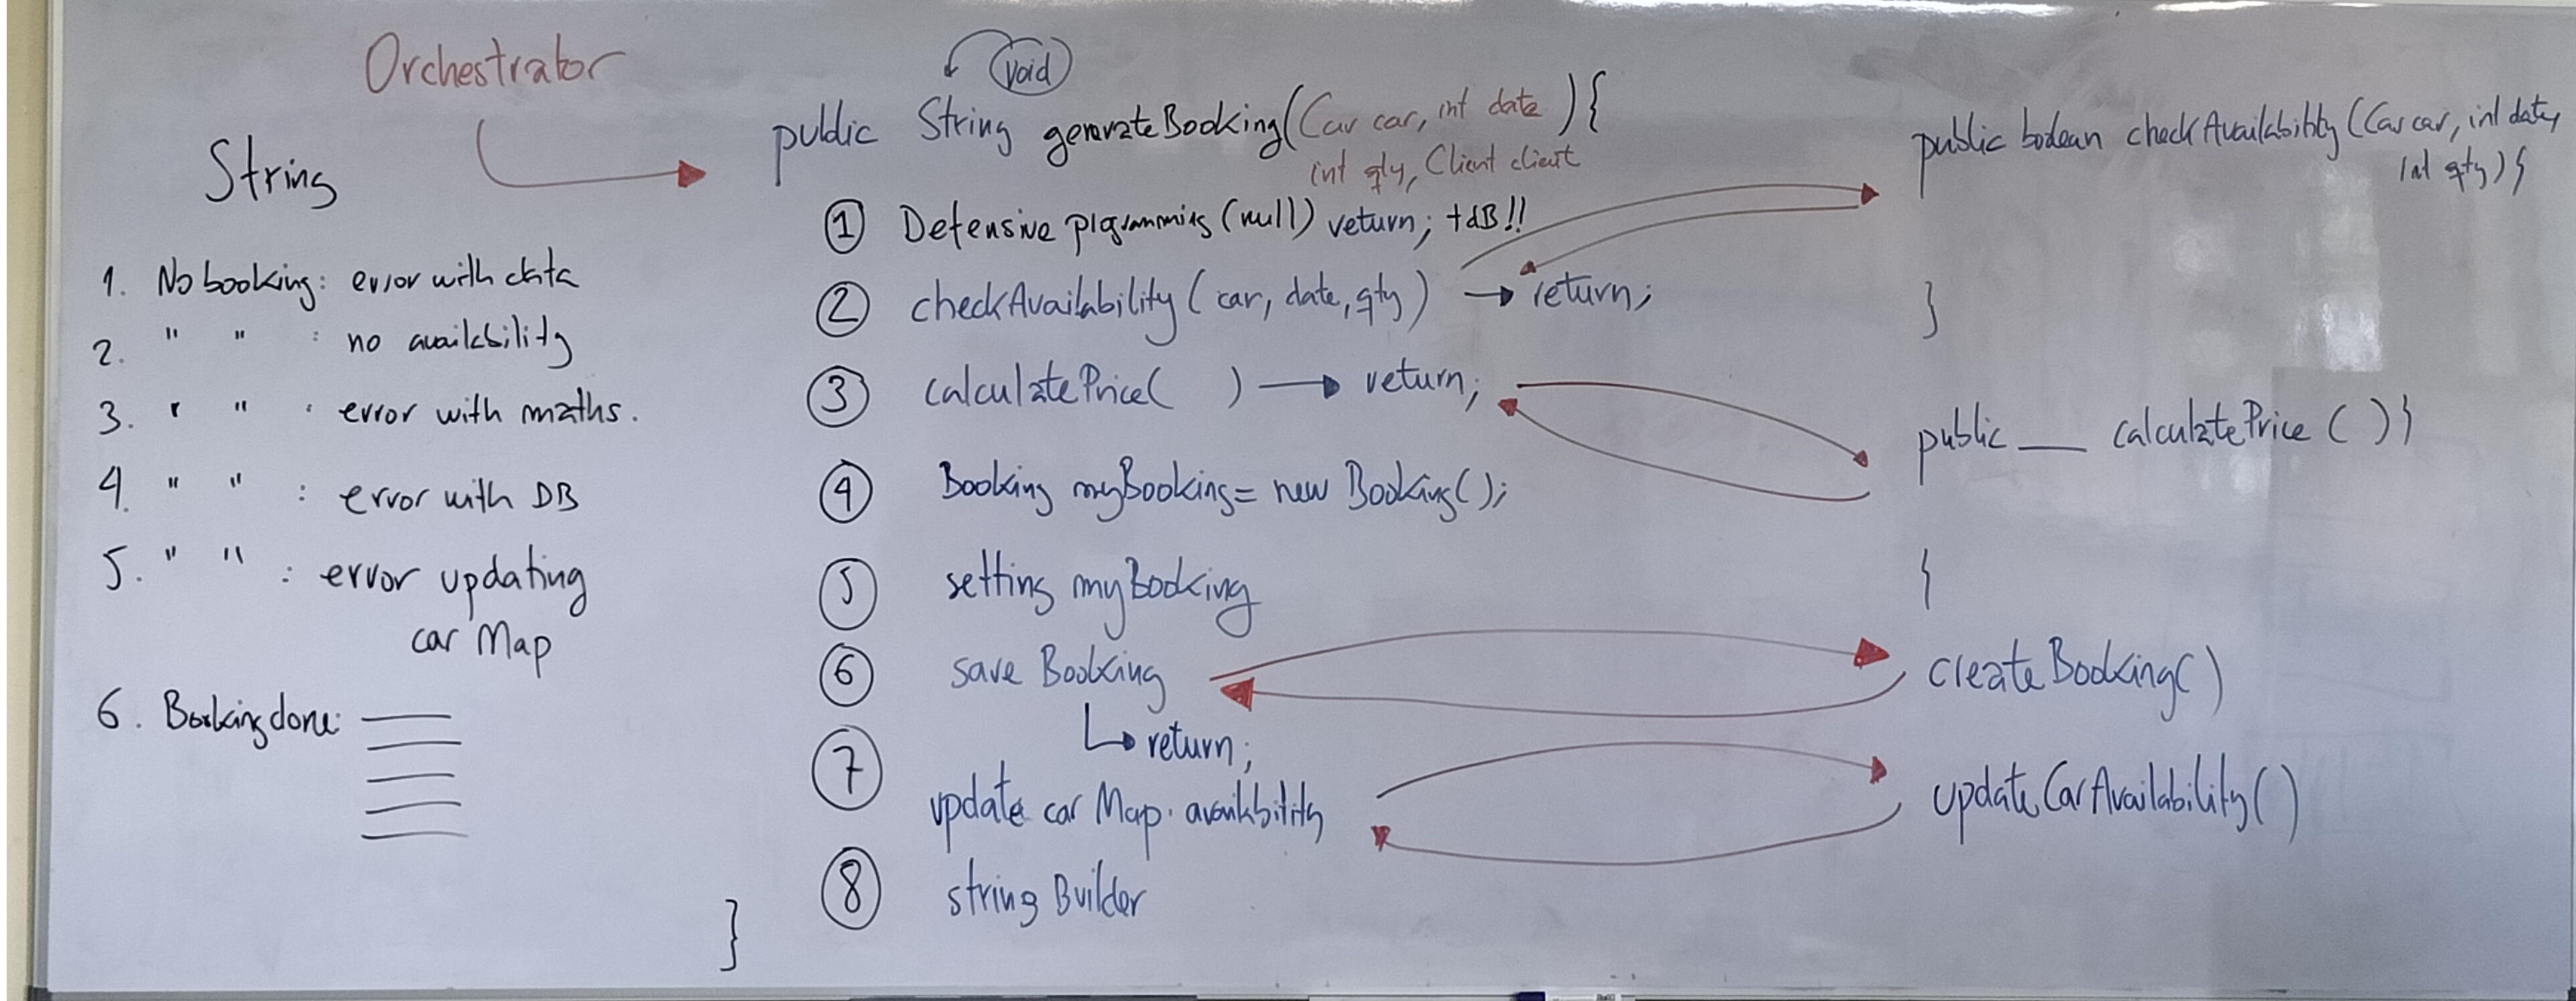 Orchestrator
String
1. No booking: error with data
2. " " : no availability
3. " " : error with maths.
4. " " : error with DB
5. " " : error updating
car Map
6. Booking done:
void
public String generateBooking(Car car, int date ){
int qty, Client client
1 Defensive programming (null) return; +dB!!
2 checkAvailability ( car, date, qty ) → return;
3 calculatePrice( ) → return;
4 Booking myBooking= new Booking();
5 setting myBooking
6 save Booking
↳ return;
7 update car Map. availability
8 string Builder
}
public boolean checkAvailability (Car car, int date,
int qty) {
}
public __ calculatePrice ( ) }
{
createBooking( )
updateCarAvailability( )